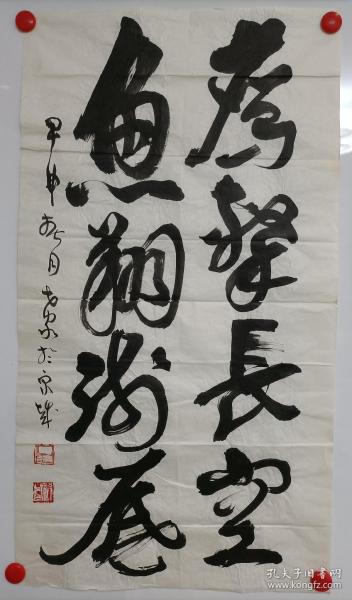 鹰击长空
鱼翔浅底
甲申
月
於京城
孔夫子旧书网